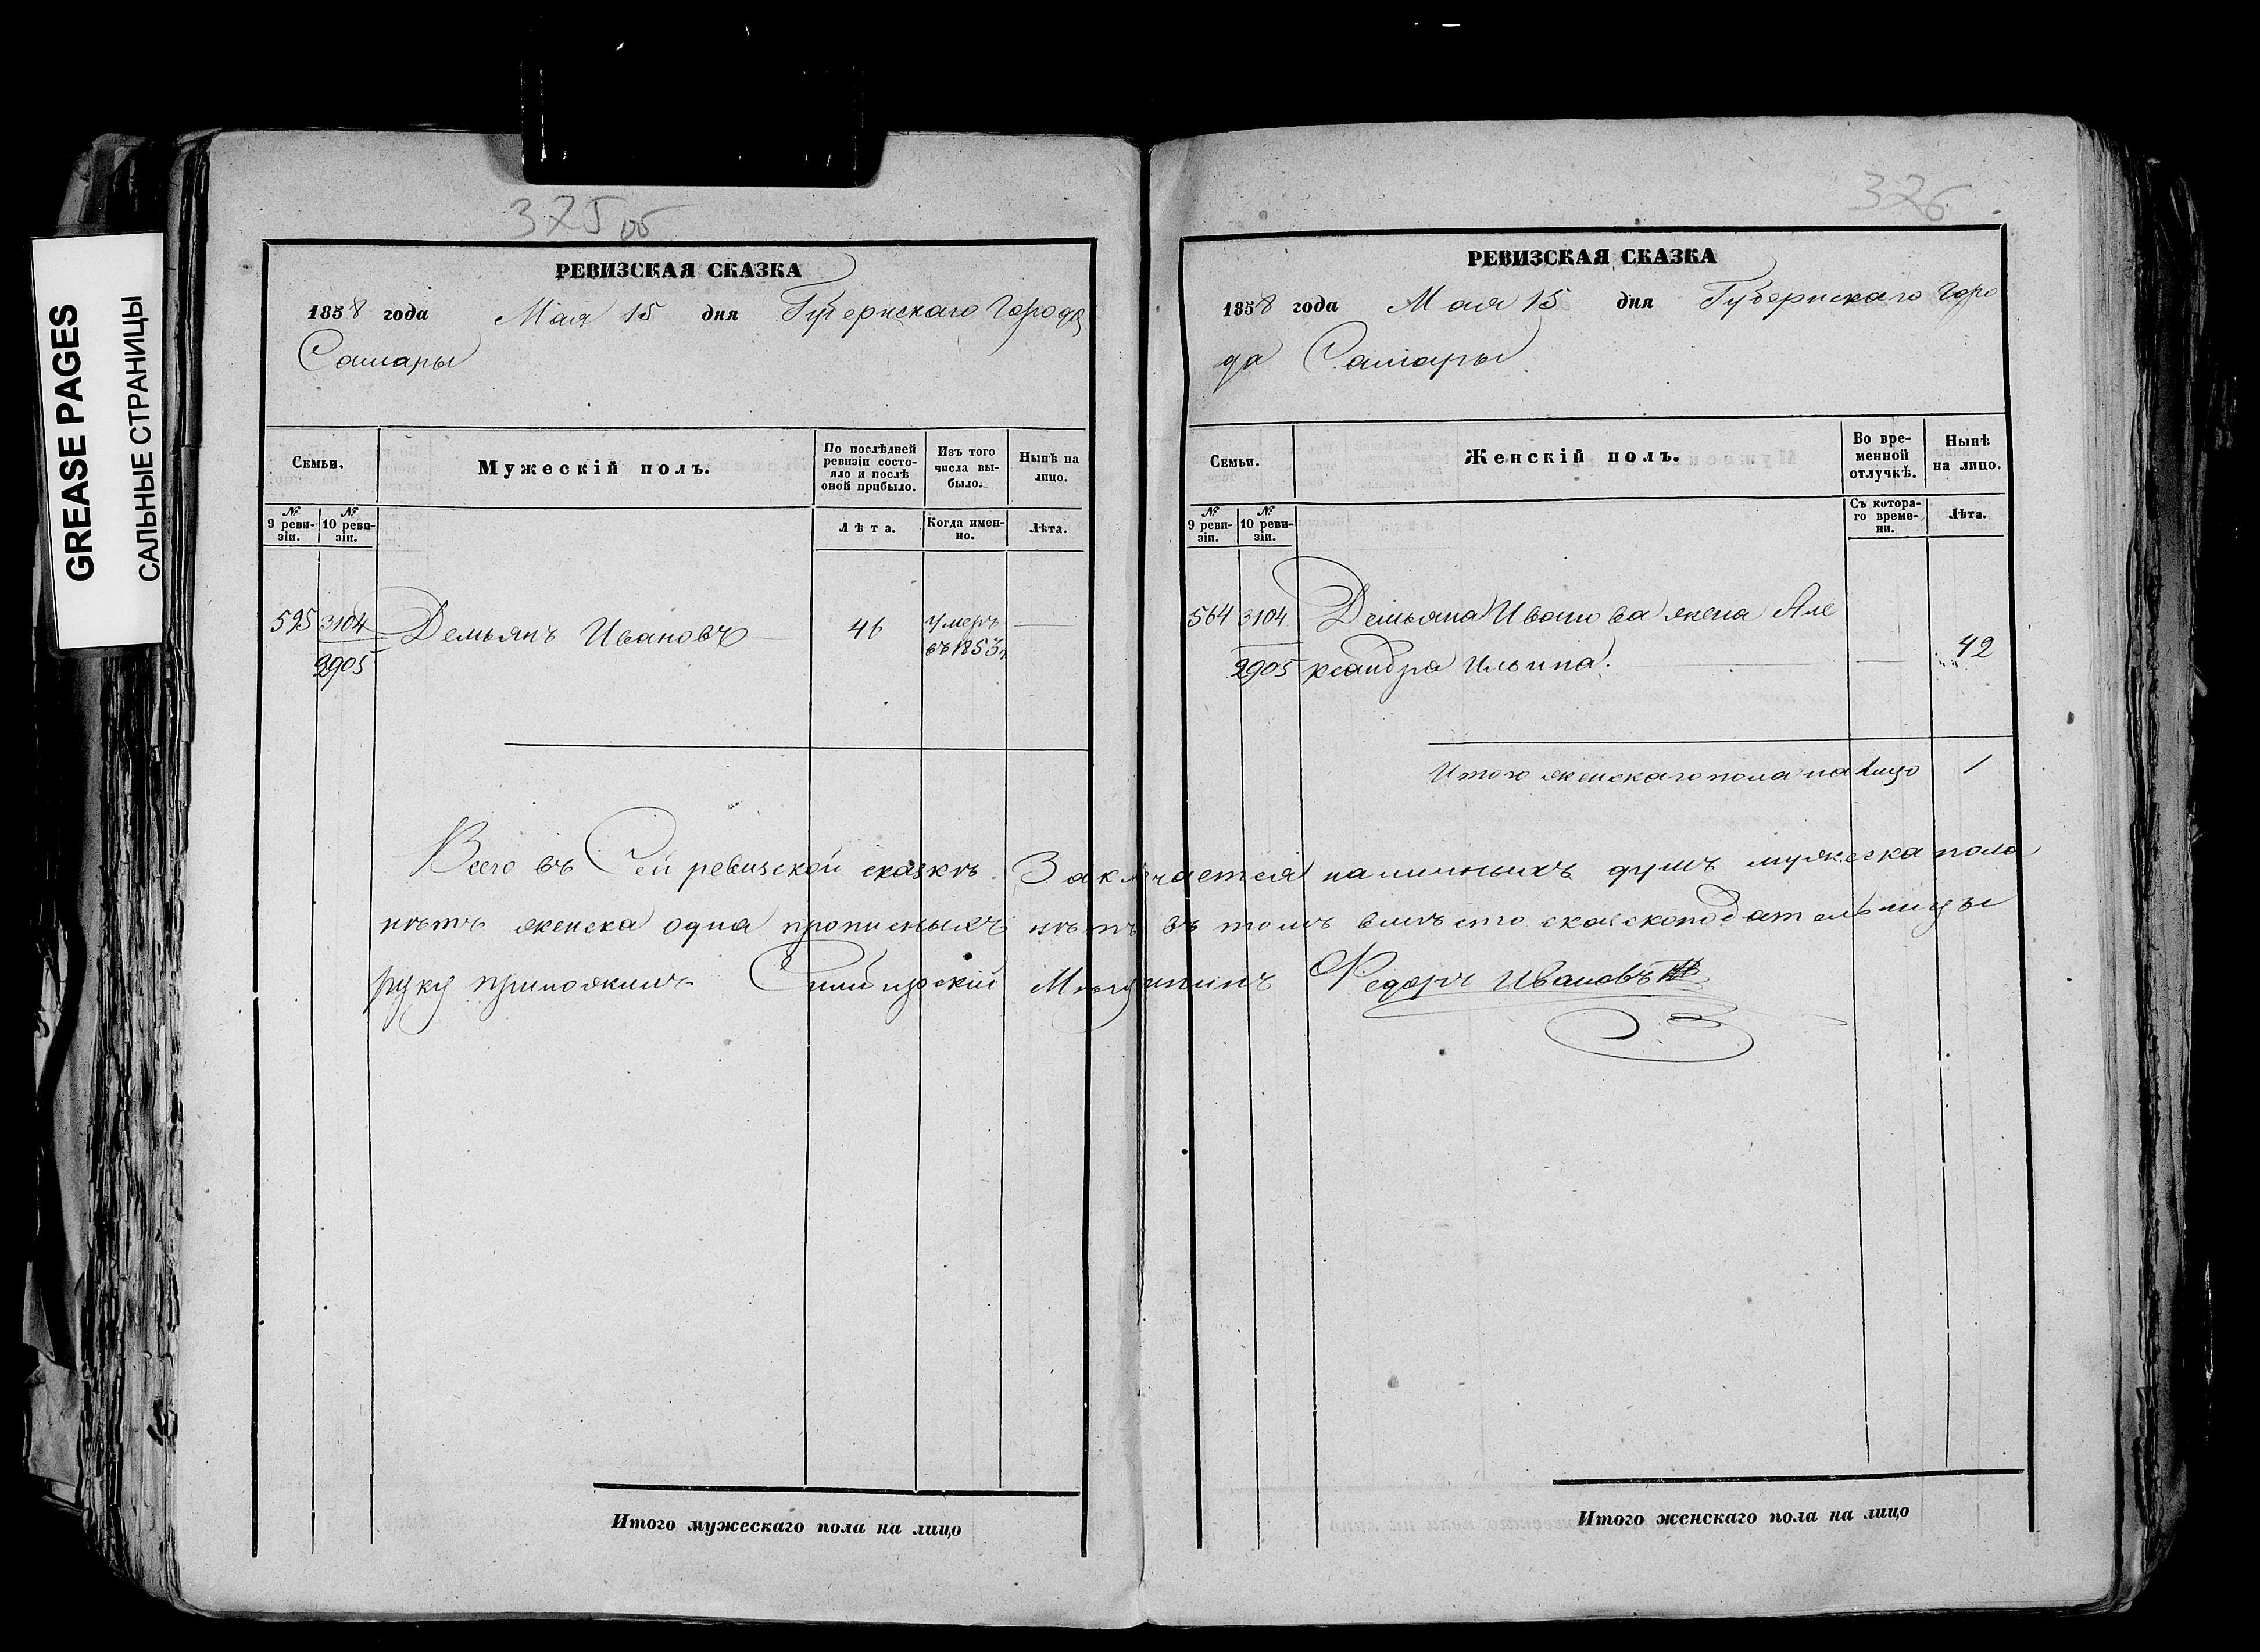 GREASE PAGES
САЛЬНЫЕ СТРАНИЦЫ
375 об
РЕВИЗСКАЯ СКАЗКА
1858 года Мая 15 дня Губернскаго Города
Самары
Семьи.
Мужескій полъ.
По послѣдней ревизіи состояло и послѣ оной прибыло.
Изъ того числа выбыло.
Нынѣ на лицо.
№ 9 ревизіи.
№ 10 ревизіи.
Лѣта.
Когда именно.
Лѣта.
595 3104 Демьянъ Ивановъ — 46 умеръ —
2905 въ 1853 г.
326
РЕВИЗСКАЯ СКАЗКА
1858 года Мая 15 дня Губернскаго Горо
да Самары
Семьи.
Женскій полъ.
Во временной отлучкѣ.
Нынѣ на лицо.
№ 9 ревизіи.
№ 10 ревизіи.
Съ котораго времени.
Лѣта.
564 3104 Демьяна Иванова жена Але
2905 ксандра Ильина. — 42
Итого женскаго пола на лицо 1
Всего въ Сей ревизской сказкѣ Заключается наличныхъ душъ мужеска пола
нѣтъ женска одна прописныхъ нѣтъ въ томъ вмѣсто сказкоподательницы
руку приложилъ Симбирскій Мѣщанинъ Федоръ Ивановъ
Итого мужескаго пола на лицо
Итого женскаго пола на лицо